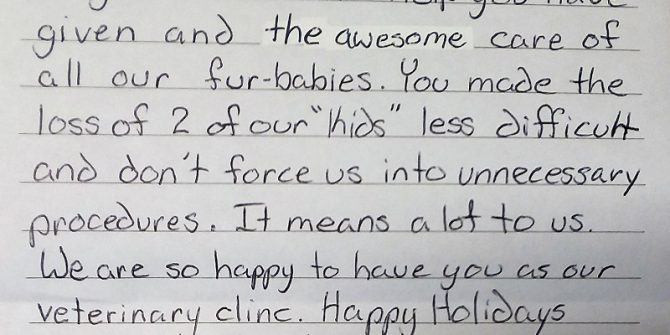 given and the awesome care of
all our fur-babies. You made the
loss of 2 of our "kids" less difficult
and don't force us into unnecessary
procedures. It means a lot to us.
We are so happy to have you as our
veterinary clinc. Happy Holidays